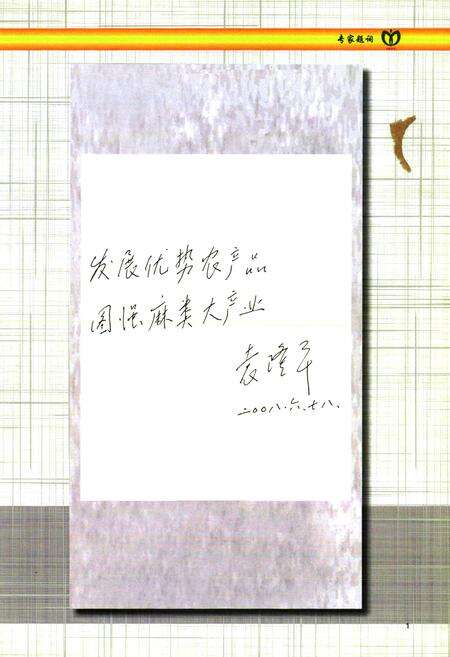 专家题词
发展优势农产品
图强麻类大产业
袁隆平
二00八.六.十八.
1